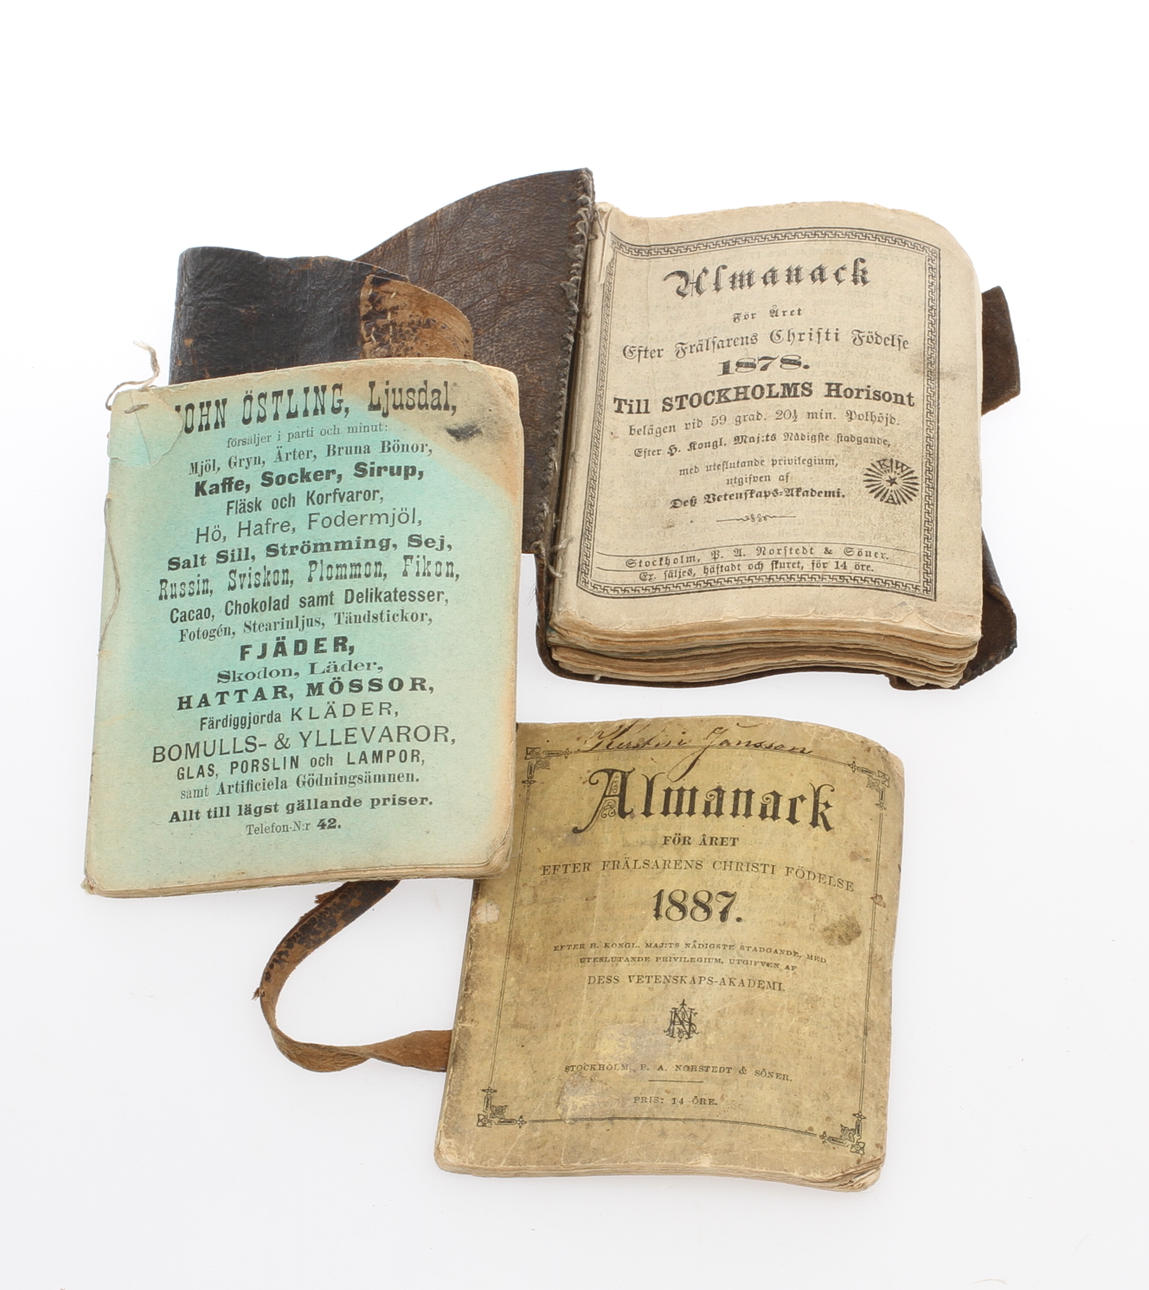 JOHN ÖSTLING, Ljusdal,
försäljer i parti och minut:
Mjöl, Gryn, Ärter, Bruna Bönor,
Kaffe, Socker, Sirup,
Fläsk och Korfvaror,
Hö, Hafre, Fodermjöl,
Salt Sill, Strömming, Sej,
Russin, Sviskon, Plommon, Fikon,
Cacao, Chokolad samt Delikatesser,
Fotogén, Stearinljus, Tändstickor,
FJÄDER,
Skodon, Läder,
HATTAR, MÖSSOR,
Färdiggjorda KLÄDER,
BOMULLS- & YLLEVAROR,
GLAS, PORSLIN och LAMPOR,
samt Artificiela Gödningsämnen.
Allt till lägst gällande priser.
Telefon-N:r 42.
Almanack
För Året
Efter Frälsarens Christi Födelse
1878.
Till STOCKHOLMS Horisont
belägen vid 59 grad. 20½ min. Polhöjd.
Efter H. Kongl. Maj:ts Nådigste stadgande,
med uteslutande privilegium,
utgifven af
Deß Vetenskaps-Akademi.
KVVA
Stockholm, P. A. Norstedt & Söner.
Ex. säljes, häftadt och skuret, för 14 öre.
Kerstin Jansson
Almanack
FÖR ÅRET
EFTER FRÄLSARENS CHRISTI FÖDELSE
1887.
EFTER H. KONGL. MAJ:TS NÅDIGSTE STADGANDE, MED
UTESLUTANDE PRIVILEGIUM, UTGIFVEN AF
DESS VETENSKAPS-AKADEMI.
STOCKHOLM, P. A. NORSTEDT & SÖNER.
PRIS: 14 ÖRE.